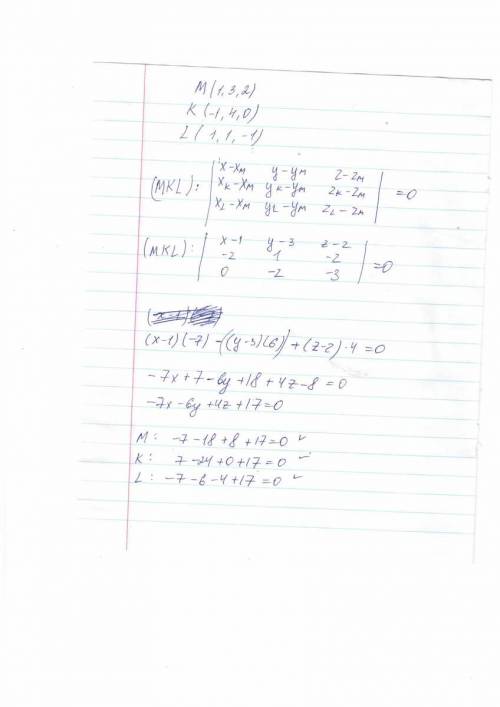 M(1,3,2)
K(-1,4,0)
L(1,1,-1)
(MKL): | x-xM y-yM z-zM |
| xK-xM yK-yM zK-zM | =0
| xL-xM yL-yM zL-zM |
(MKL): | x-1 y-3 z-2 |
| -2 1 -2 | =0
| 0 -2 -3 |
(x-1)(-7) -((y-3)(6)) +(z-2)·4=0
-7x+7-6y+18+4z-8=0
-7x-6y+4z+17=0
M: -7-18+8+17=0 ✓
K: 7-24+0+17=0 ✓
L: -7-6-4+17=0 ✓